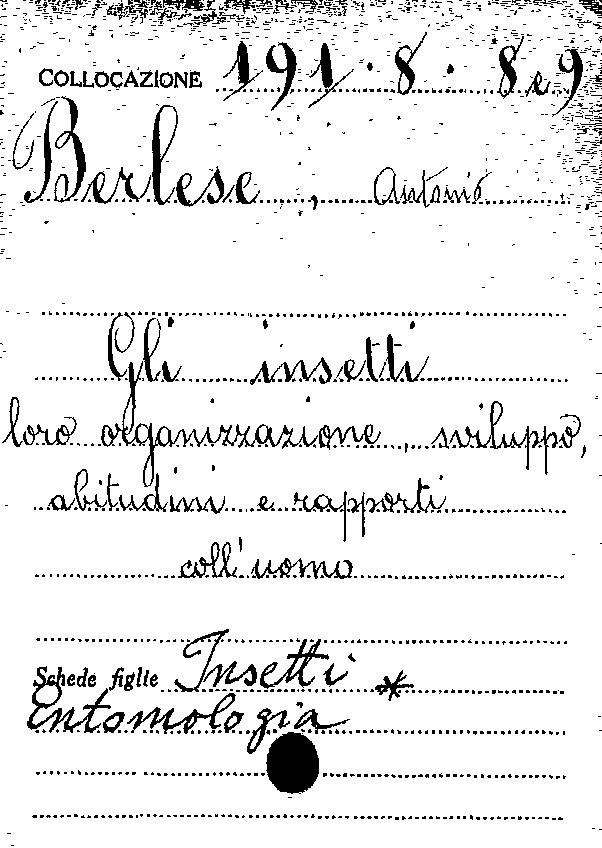 COLLOCAZIONE 191.8.8e9
Berlese, Antonio
Gli insetti
loro organizzazione, sviluppo,
abitudini e rapporti
coll'uomo
Schede figlie Insetti *
Entomologia